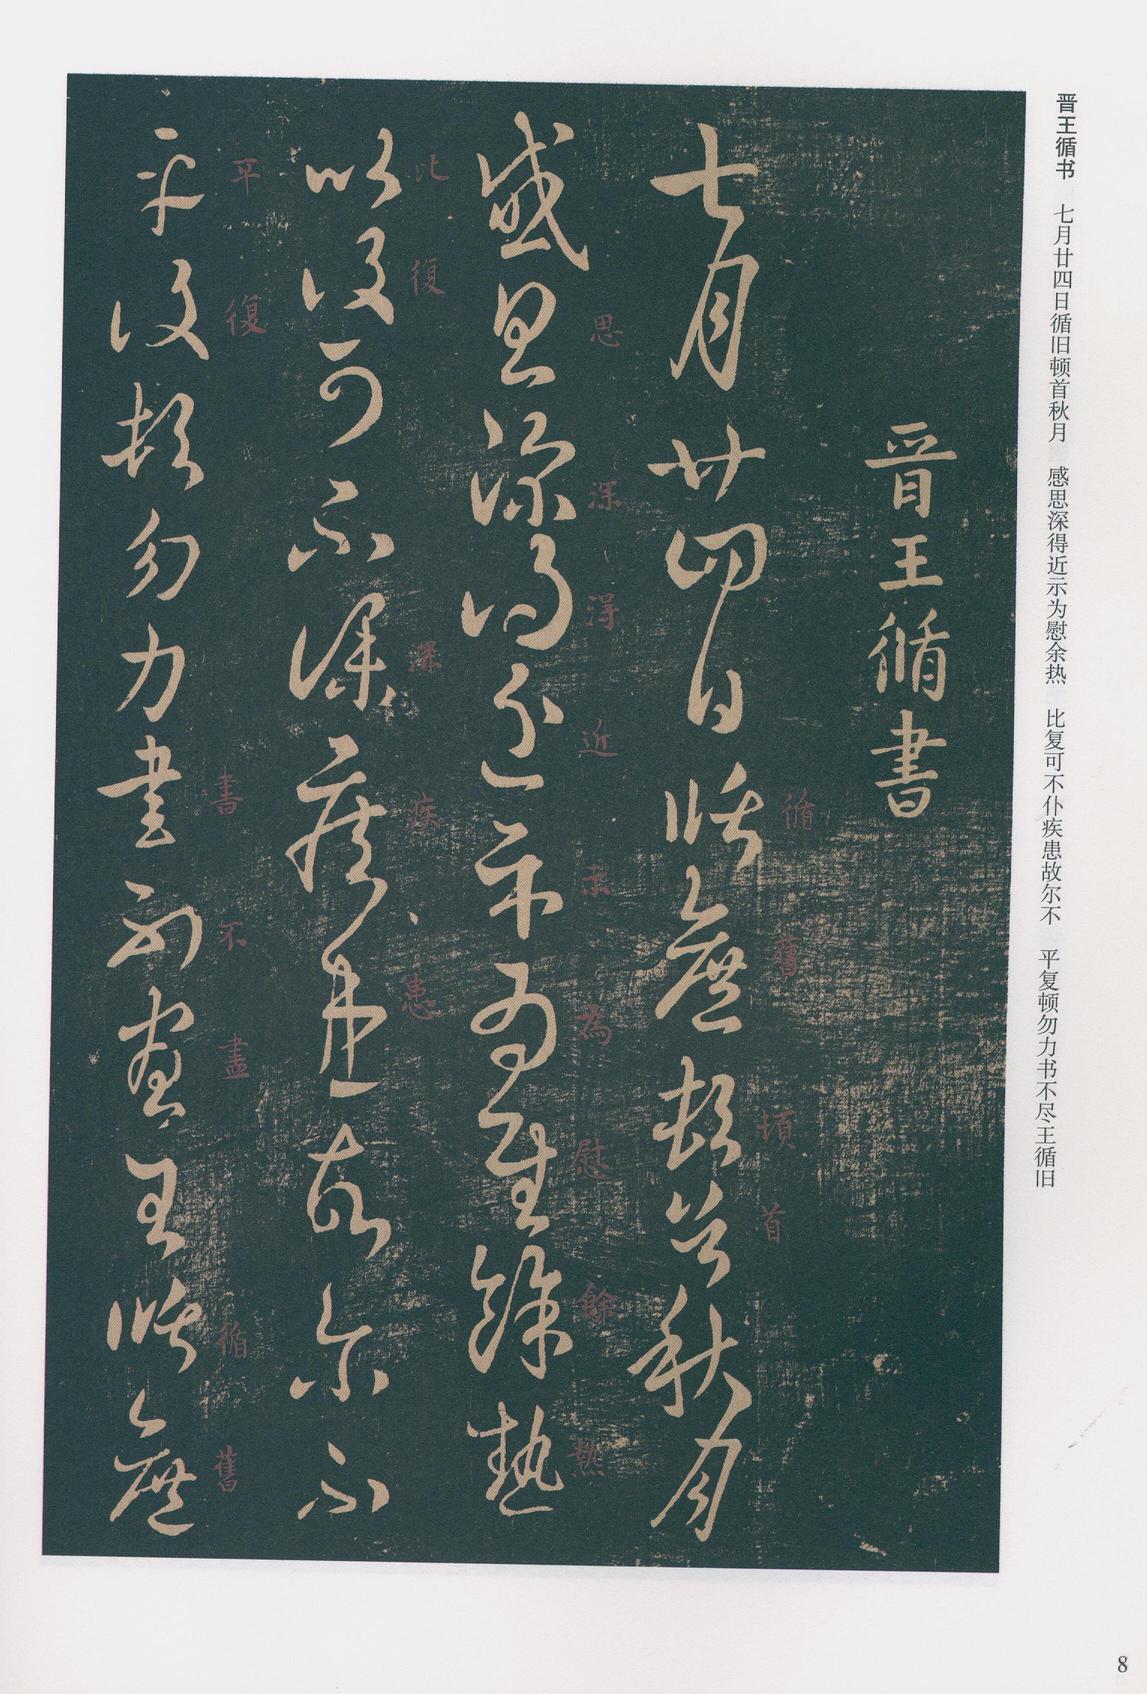 晋王循书　七月廿四日循旧顿首秋月　感思深得近示为慰余热　比复可不仆疾患故尔不　平复顿勿力书不尽王循旧
晉王循書
七月廿四日循舊頓首秋月
循舊頓首
感思深得近示為慰餘熱
思深得近示為慰餘熱
比復可不深疾患故尔不
比復深疾患
平復頓勿力書不盡王循舊
平復書不盡循舊
8